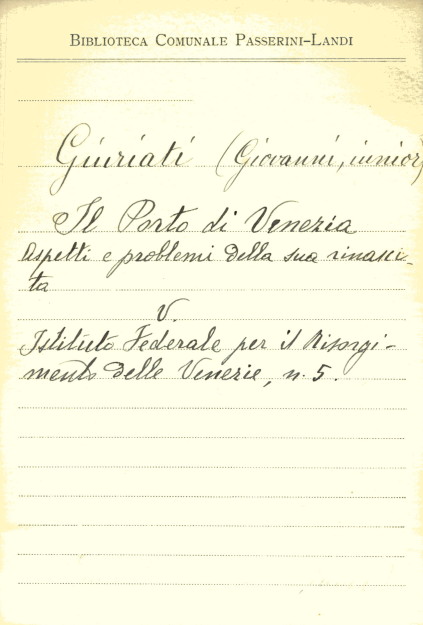 BIBLIOTECA COMUNALE PASSERINI-LANDI
Giuriati (Giovanni, iunior)
Il Porto di Venezia
Aspetti e problemi della sua rinasci-
ta
V.
Istituto Federale per il Risorgi-
mento delle Venezie, n. 5.